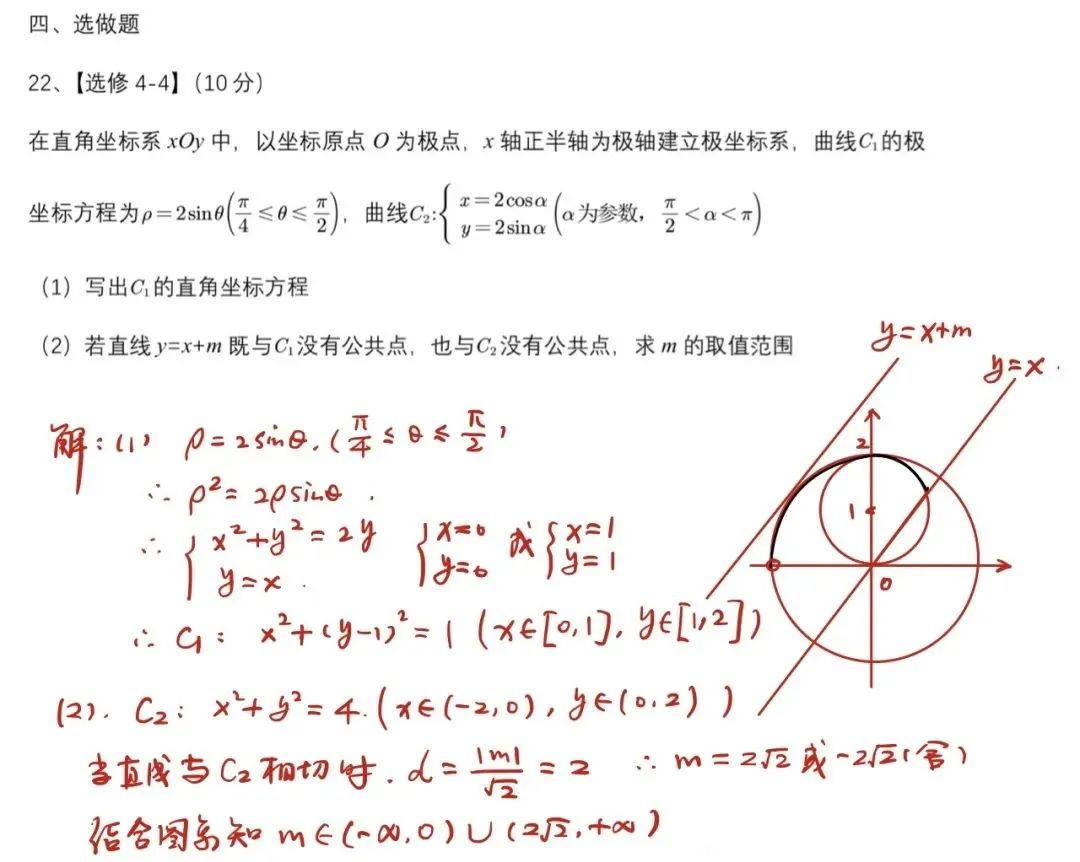 四、选做题
22、【选修 4-4】（10 分）
在直角坐标系 xOy 中，以坐标原点 O 为极点，x 轴正半轴为极轴建立极坐标系，曲线C₁的极
坐标方程为ρ=2sinθ(π/4≤θ≤π/2)，曲线C₂:{x=2cosα y=2sinα (α为参数，π/2<α<π)
（1）写出C₁的直角坐标方程
（2）若直线 y=x+m 既与C₁没有公共点，也与C₂没有公共点，求 m 的取值范围
y=x+m
y=x.
2
1
0
解：(1) ρ=2sinθ.(π/4≤θ≤π/2)
∴ρ²=2ρsinθ.
∴{x²+y²=2y y=x. {x=0 y=0 或{x=1 y=1
∴C₁: x²+(y-1)²=1 (x∈[0,1], y∈[1,2])
(2). C₂: x²+y²=4.(x∈(-2,0), y∈(0,2))
当直线与C₂相切时.d=|m|/√2=2 ∴m=2√2或-2√2(舍)
结合图象知 m∈(-∞,0)∪(2√2,+∞)